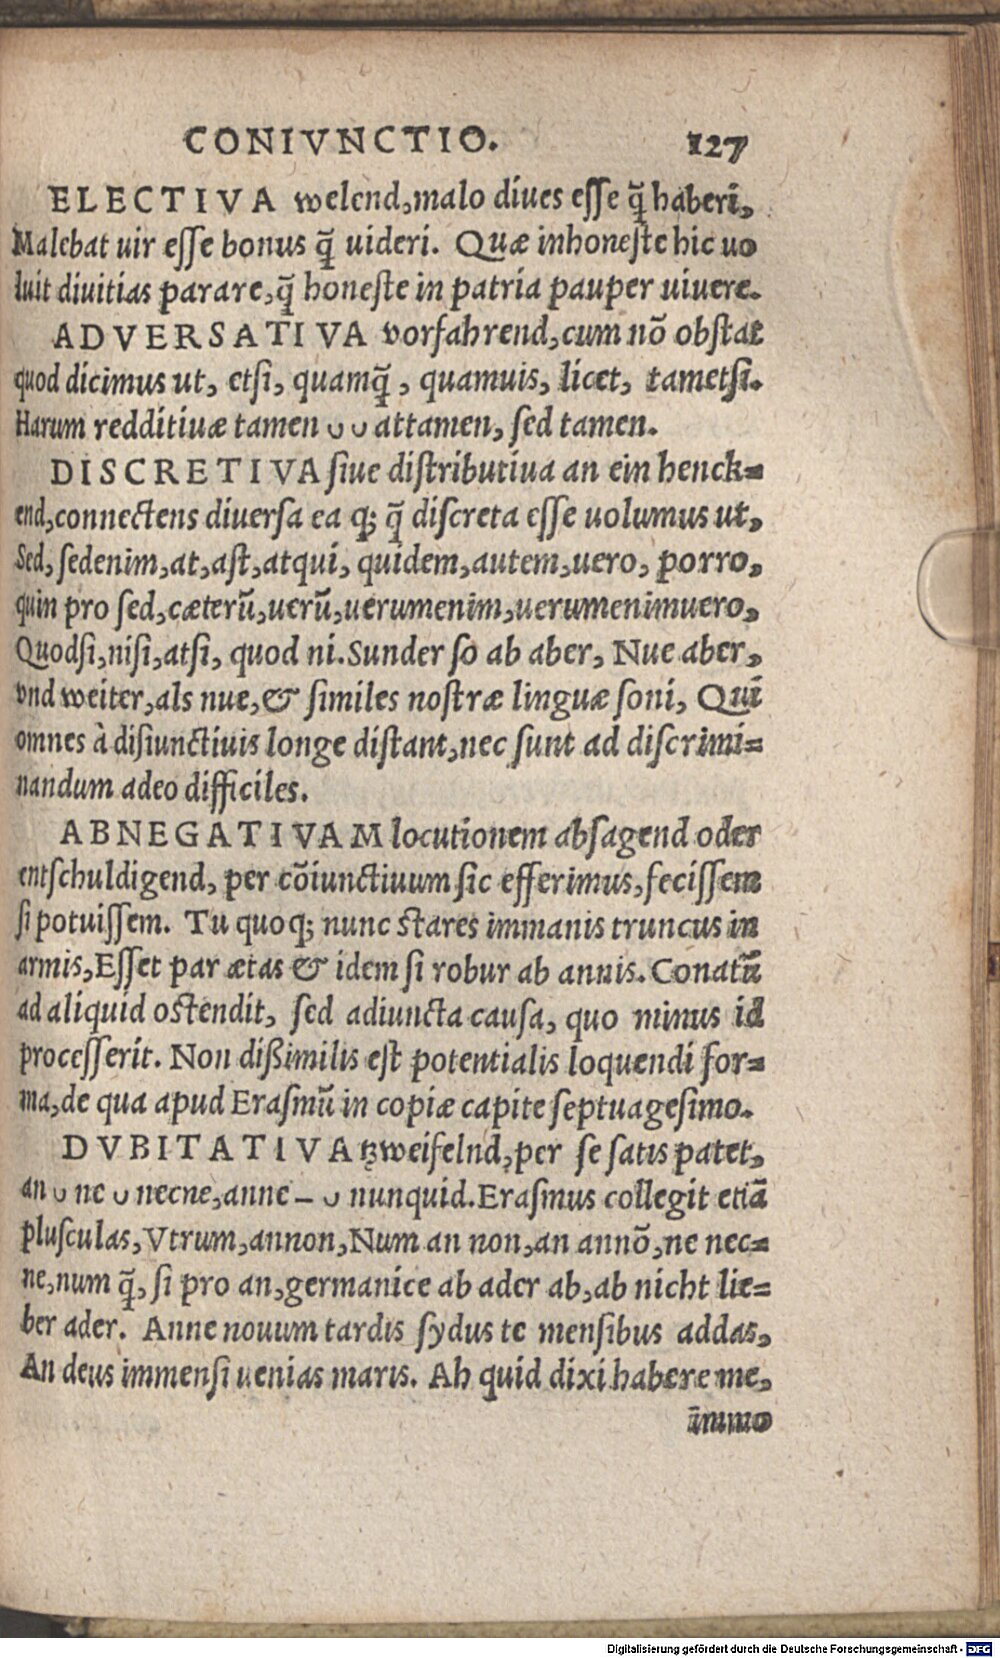 CONIVNCTIO. 127
ELECTIVA welend,malo diues esse q̃ haberi,
Malebat uir esse bonus q̃ uideri. Quæ inhoneste hic uo
luit diuitias parare,q̃ honeste in patria pauper uiuere.
ADVERSATIVA vorfahrend,cum nõ obstat
quod dicimus ut, etsi, quamq̃, quamuis, licet, tametsi.
Harum redditiuæ tamen ᴗ ᴗ attamen, sed tamen.
DISCRETIVA siue distributiua an ein henck=
end,connectens diuersa ea q; q̃ discreta esse uolumus ut,
Sed, sedenim,at,ast,atqui, quidem,autem,uero, porro,
quin pro sed,cæterũ,uerũ,uerumenim,uerumenimuero,
Quodsi,nisi,atsi, quod ni.Sunder so ab aber, Nue aber,
vnd weiter,als nue,& similes nostræ linguæ soni, Qui
omnes à disiunctiuis longe distant,nec sunt ad discrimi=
nandum adeo difficiles.
ABNEGATIVAM locutionem absagend oder
entschuldigend, per cõiunctiuum sic efferimus,fecissem
si potuissem. Tu quoq; nunc stares immanis truncus in
armis,Esset par ætas & idem si robur ab annis. Conatũ
ad aliquid ostendit, sed adiuncta causa, quo minus id
processerit. Non dißimilis est potentialis loquendi for=
ma,de qua apud Erasmũ in copiæ capite septuagesimo.
DVBITATIVA tzweifelnd,per se satis patet,
an ᴗ ne ᴗ necne,anne – ᴗ nunquid.Erasmus collegit etiã
plusculas,Vtrum,annon,Num an non,an annõ,ne nec=
ne,num q̃, si pro an,germanice ab ader ab,ab nicht lie=
ber ader. Anne nouum tardis sydus te mensibus addas,
An deus immensi uenias maris. Ah quid dixi habere me,
immo
Digitalisierung gefördert durch die Deutsche Forschungsgemeinschaft - DFG